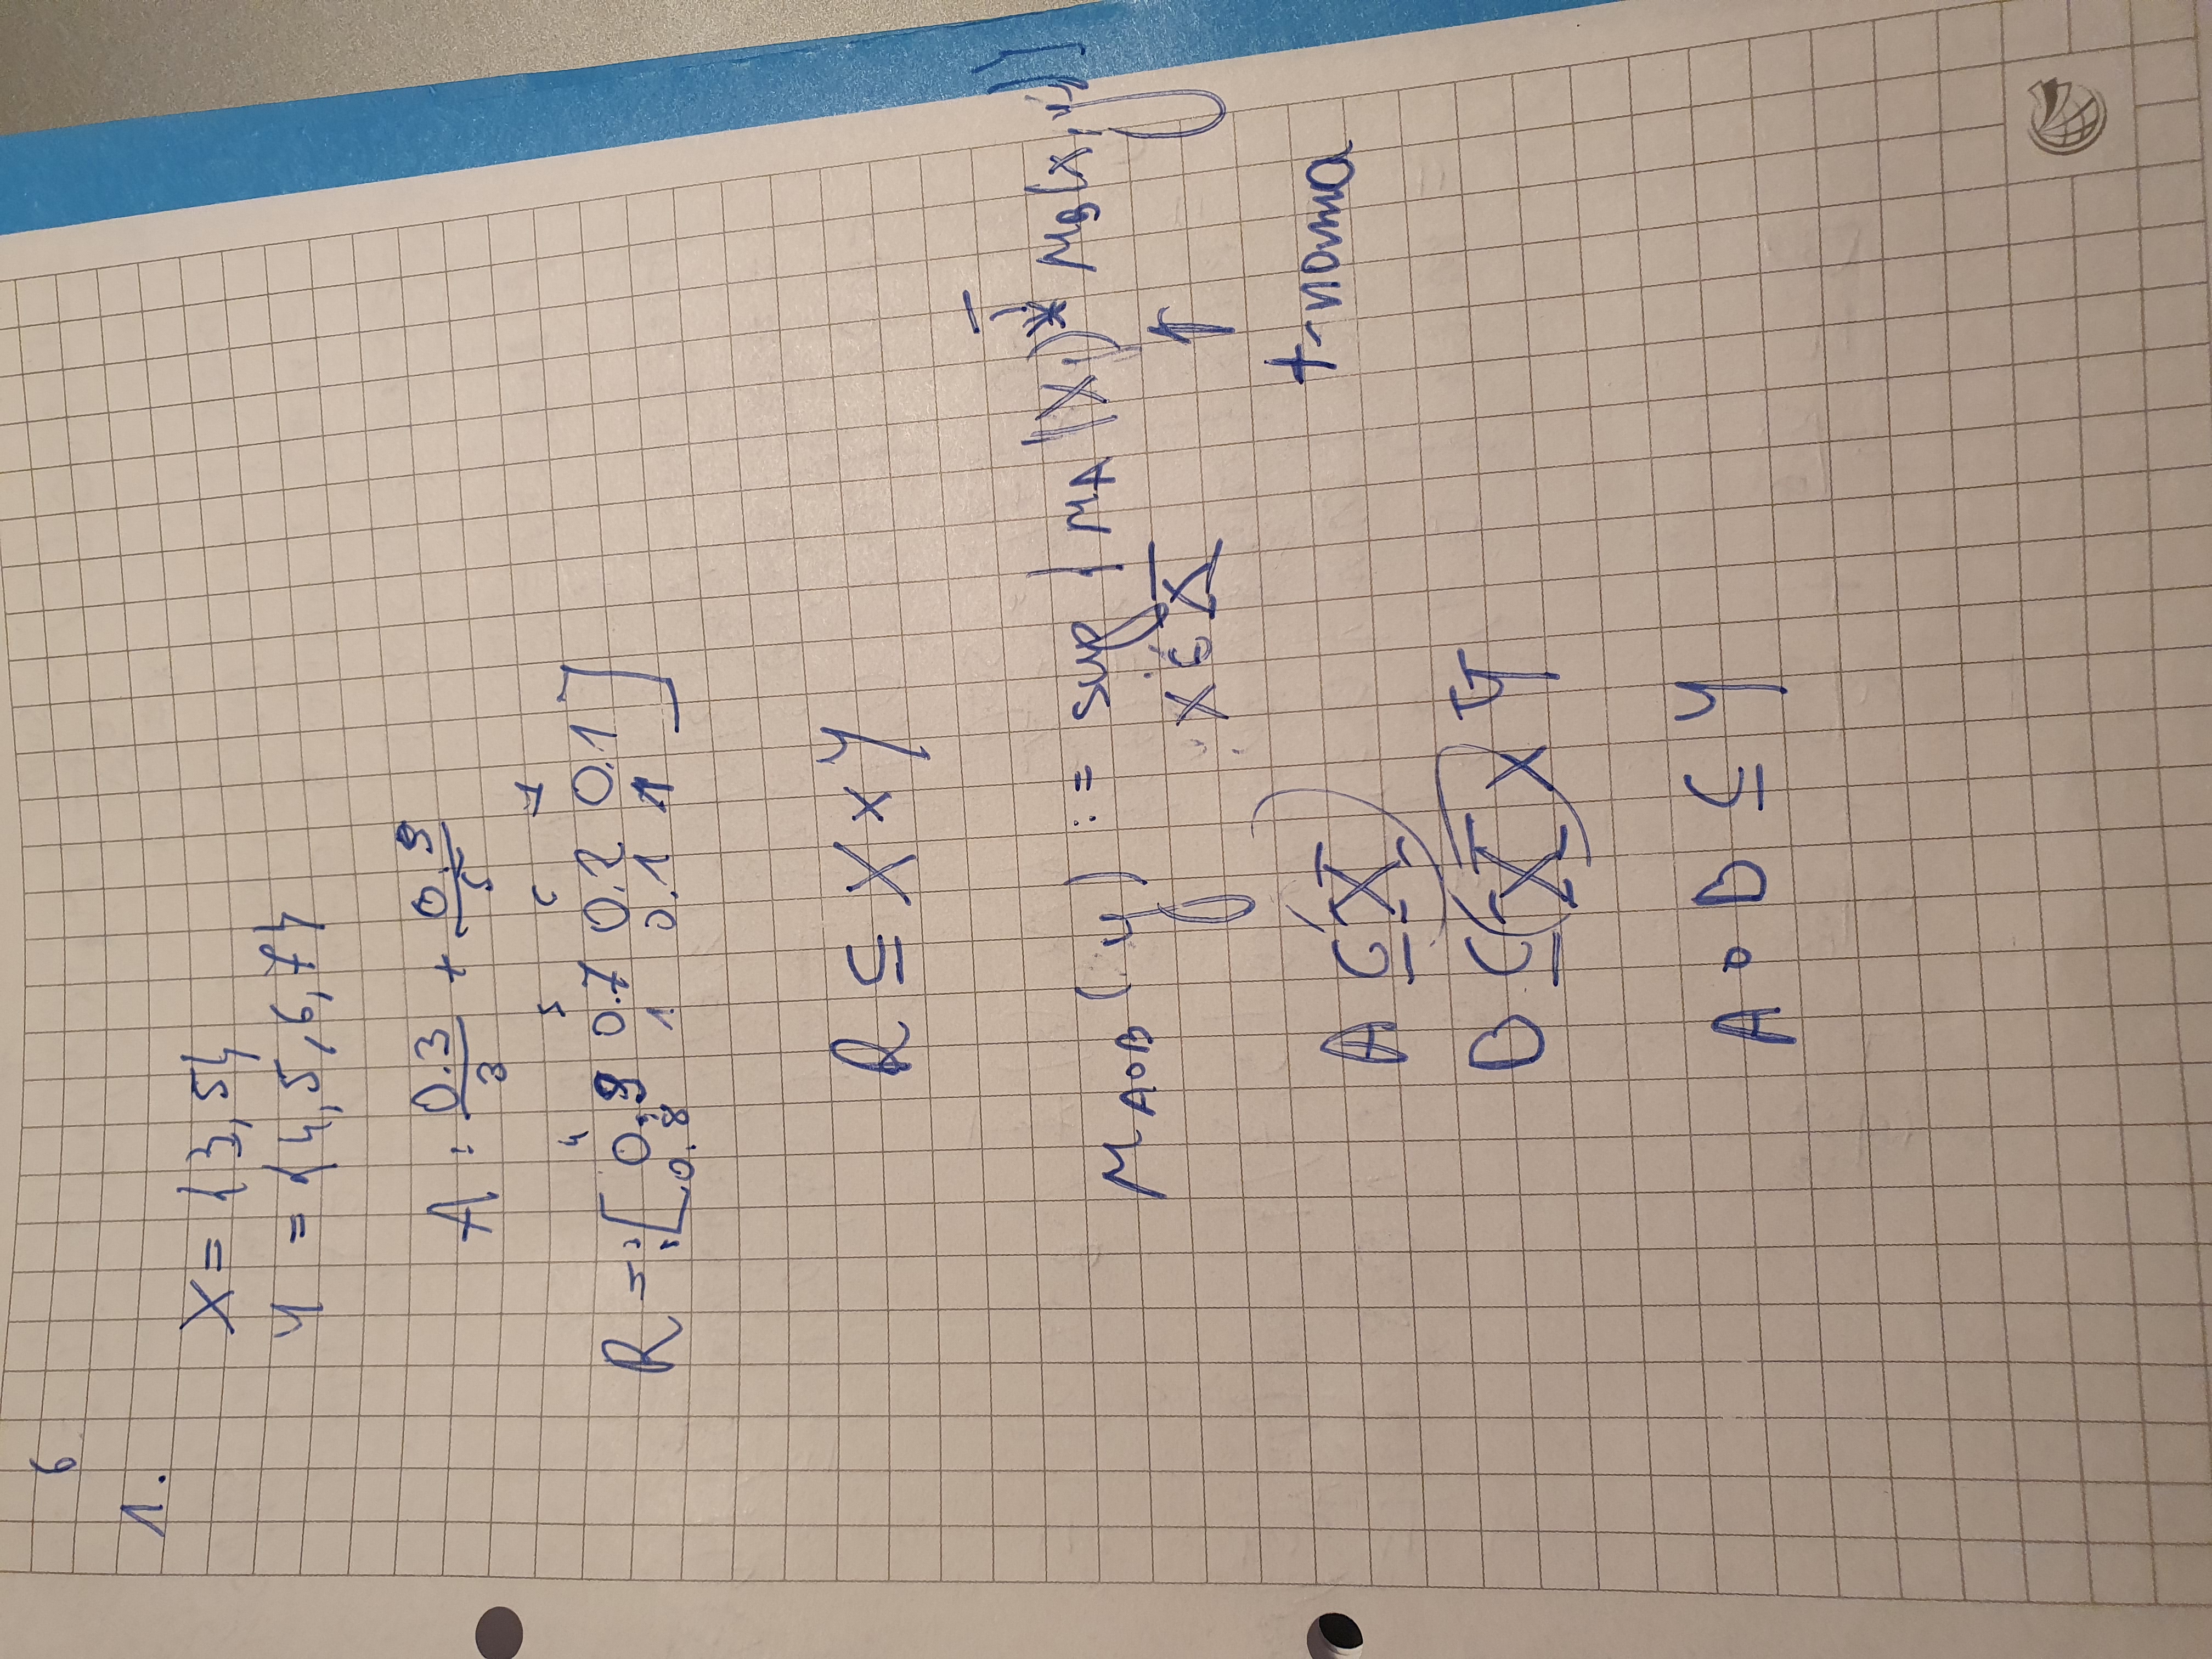 6
1.
X = {3, 5}
Y = {4, 5, 6, 7}
A : 0.3/3 + 0.9/5
4 5 6 7
R = 3 [ 0.9 0.7 0.2 0.1 ]
5 [ 0.8 1 0.1 1 ]
R ⊆ X × Y
μ A∘B (y) := sup { μA (x) * μB (x, y) }
x ∈ X
↑
t-norma
A ⊆ X
B ⊆ X × Y
A ∘ B ⊆ Y